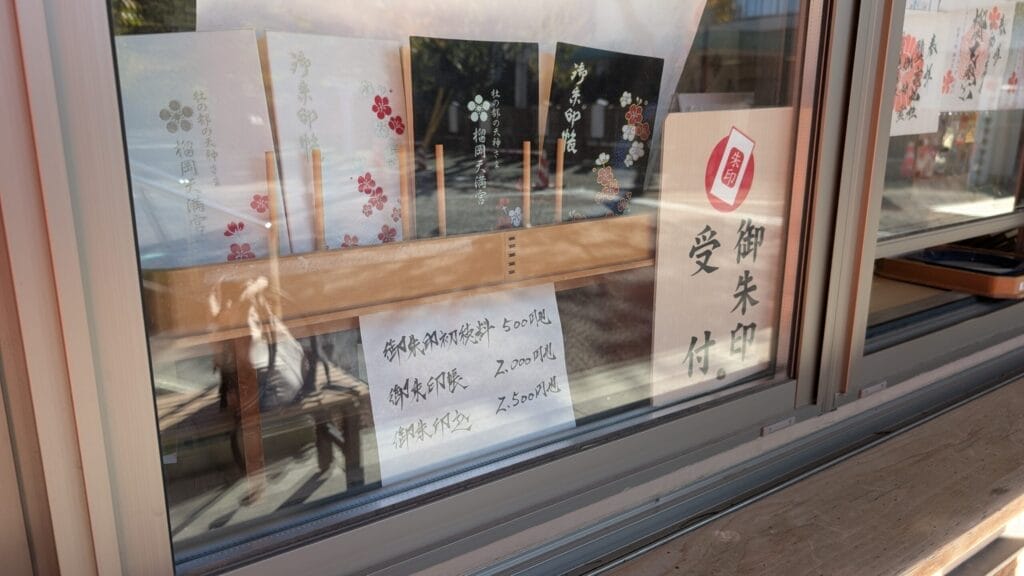 杜の都の天神さま
榴岡天満宮
御朱印帳
杜の都の天神さま
榴岡天満宮
御朱印帳
朱印
御朱印
受付。
御朱印初穂料 500円也
御朱印帳 2,000円也
2,500円也